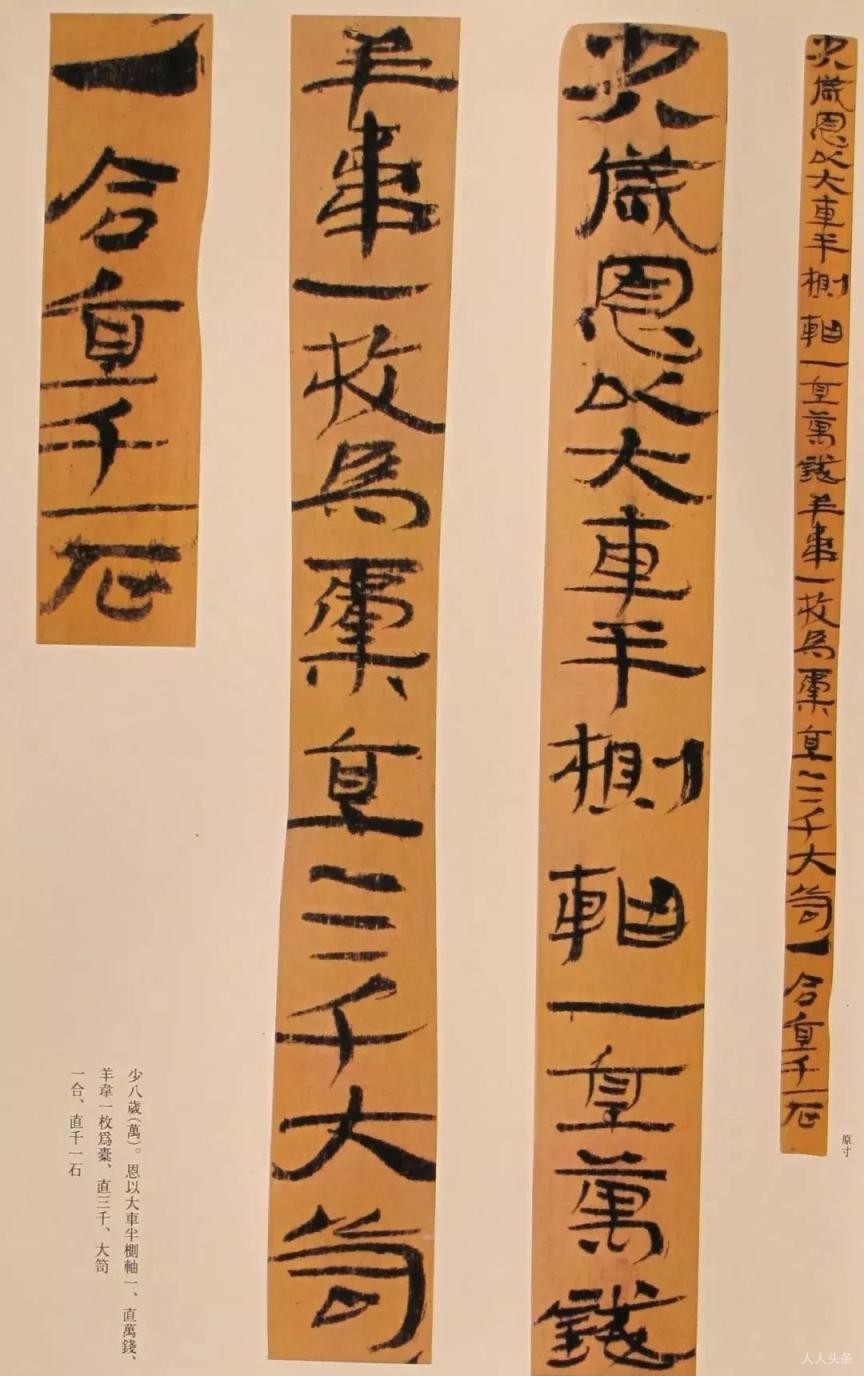 少八歲恩以大車半㮟軸一直萬錢羊韋一枚為橐直三千大笥一合直千一石
原寸
少八歲恩以大車半㮟軸一直萬錢
羊韋一枚為橐直三千大笥
一合直千一石
少八歲(萬)。恩以大車半㮟軸一、直萬錢、
羊韋一枚爲橐、直三千、大笥
一合、直千一石
人人头条